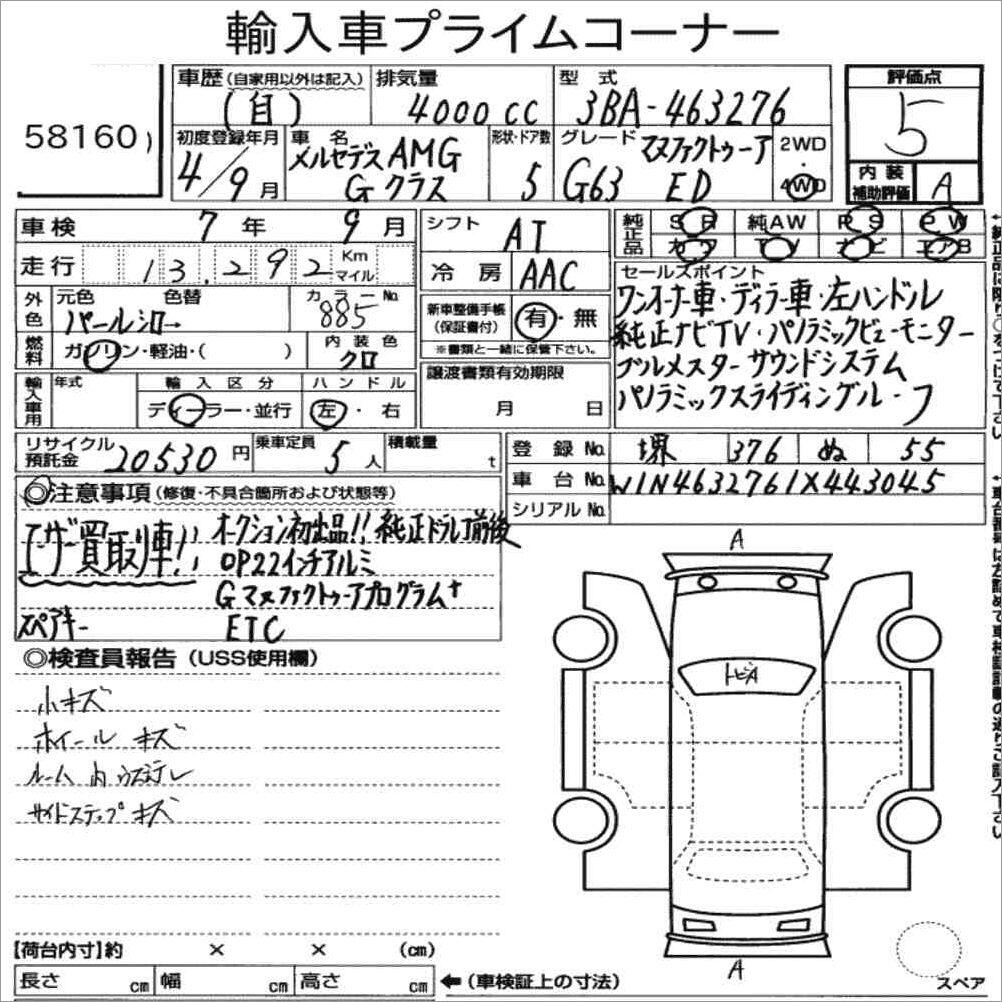 輸入車プライムコーナー
58160)
車歴(自家用以外は記入) 排気量 型 式 評価点
(自) 4000 CC 3BA-463276 5
初度登録年月 車 名 形状・ドア数 グレード マヌファクトゥーア 2WD
4/9月 メルセデスAMG Gクラス 5 G63 ED 4WD
内装補助評価 A
車検 7年 9月 シフト AT 純正品 SR 純AW PS PW
カワ TV ナビ エアB
走行 13,292 Km マイル 冷房 AAC
セールスポイント
外色 元色 色替 カラーNo.
パールシロ→ 885
ワンオーナー車・ディラー車・左ハンドル
新車整備手帳(保証書付) 有・無
純正ナビTV・パノラミックビューモニター
燃料 ガソリン・軽油・( ) 内装色 クロ
※書類と一緒に保管下さい。
ブルメスターサウンドシステム
譲渡書類有効期限
月 日
パノラミックスライディングルーフ
輸入車用 年式 輸入区分 ハンドル
ディーラー・並行 左・右
リサイクル預託金 20530円 乗車定員 5人 積載量 t
登録No. 堺 376 ぬ 55
車台No. W1N4632761X443045
シリアルNo.
◎注意事項(修復・不具合箇所および状態等)
ユーザー買取車!! オークション初出品!! 純正ドラレコ前後
OP22インチアルミ
Gマヌファクトゥーアプログラム+
スペアキー ETC
◎検査員報告(USS使用欄)
小キズ
ホイールキズ
ルーム内ウスヨゴレ
サイドステップキズ
A
トビA
A
スペア
【荷台内寸】約 × × (cm)
長さ cm 幅 cm 高さ cm ←(車検証上の寸法)